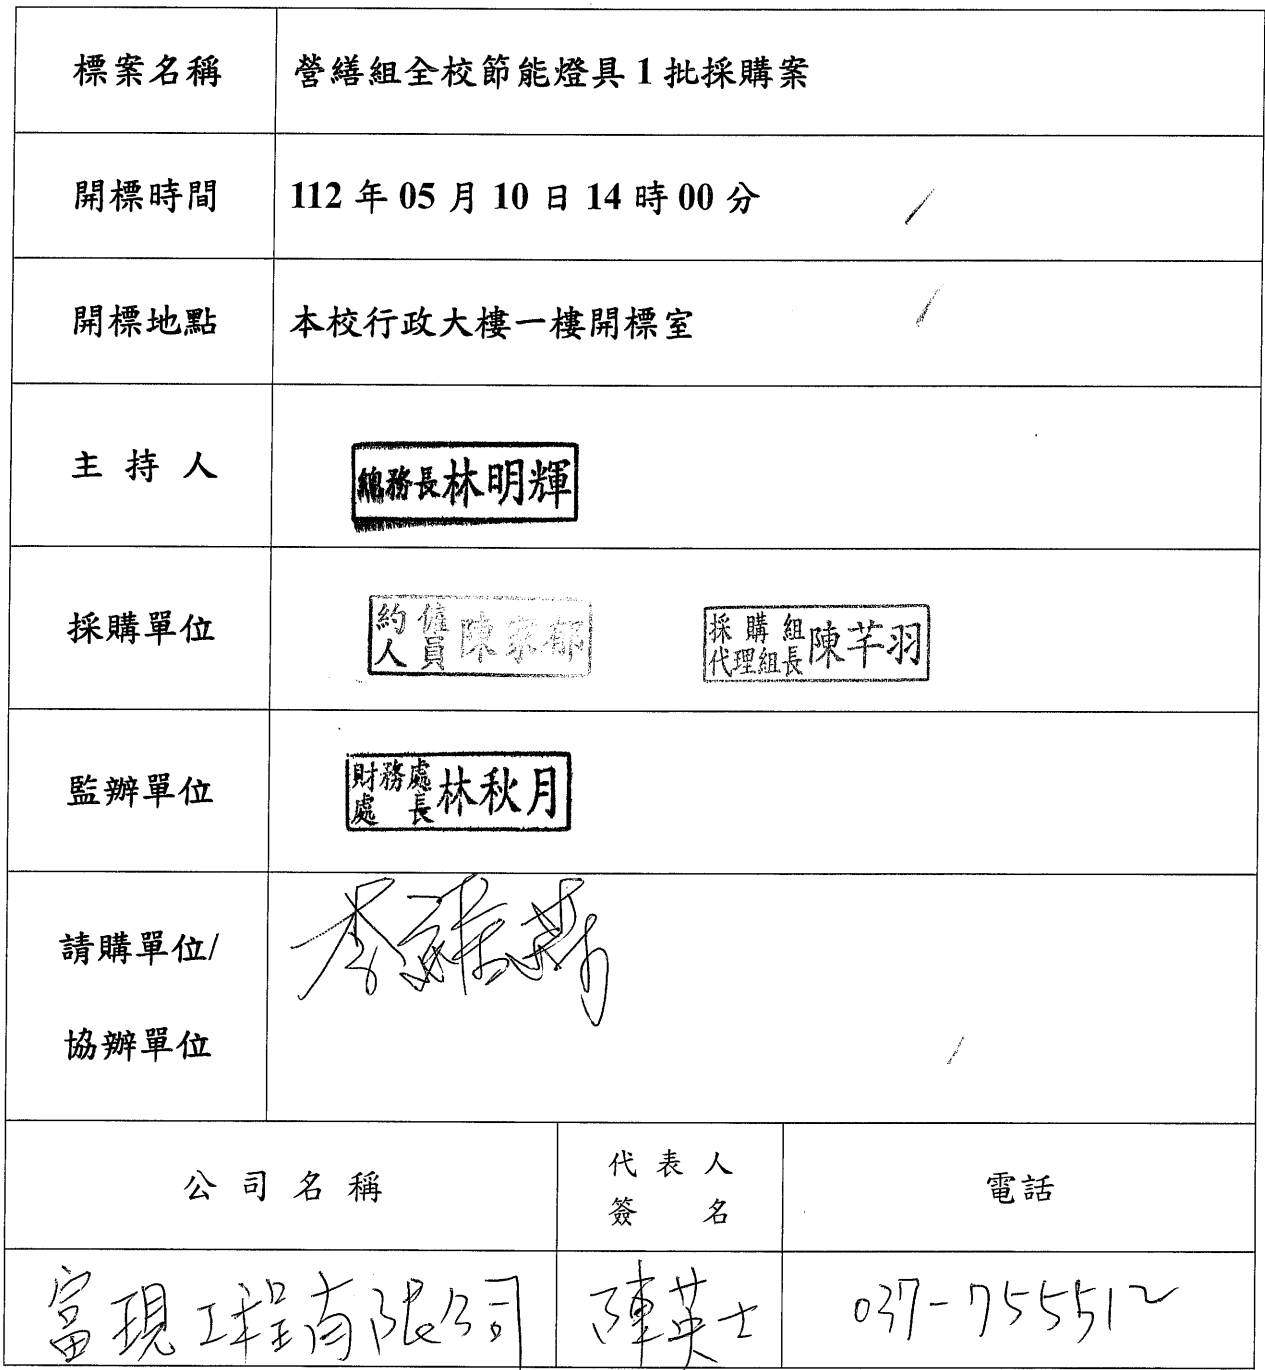 標案名稱 營繕組全校節能燈具1批採購案
開標時間 112年05月10日14時00分
開標地點 本校行政大樓一樓開標室
主持人 總務長林明輝
採購單位 約僱人員陳家郁 採購組代理組長陳芊羽
監辦單位 財務處處長林秋月
請購單位/
協辦單位
公司名稱 代表人簽名 電話
富現工程有限公司 陳英士 037-755512